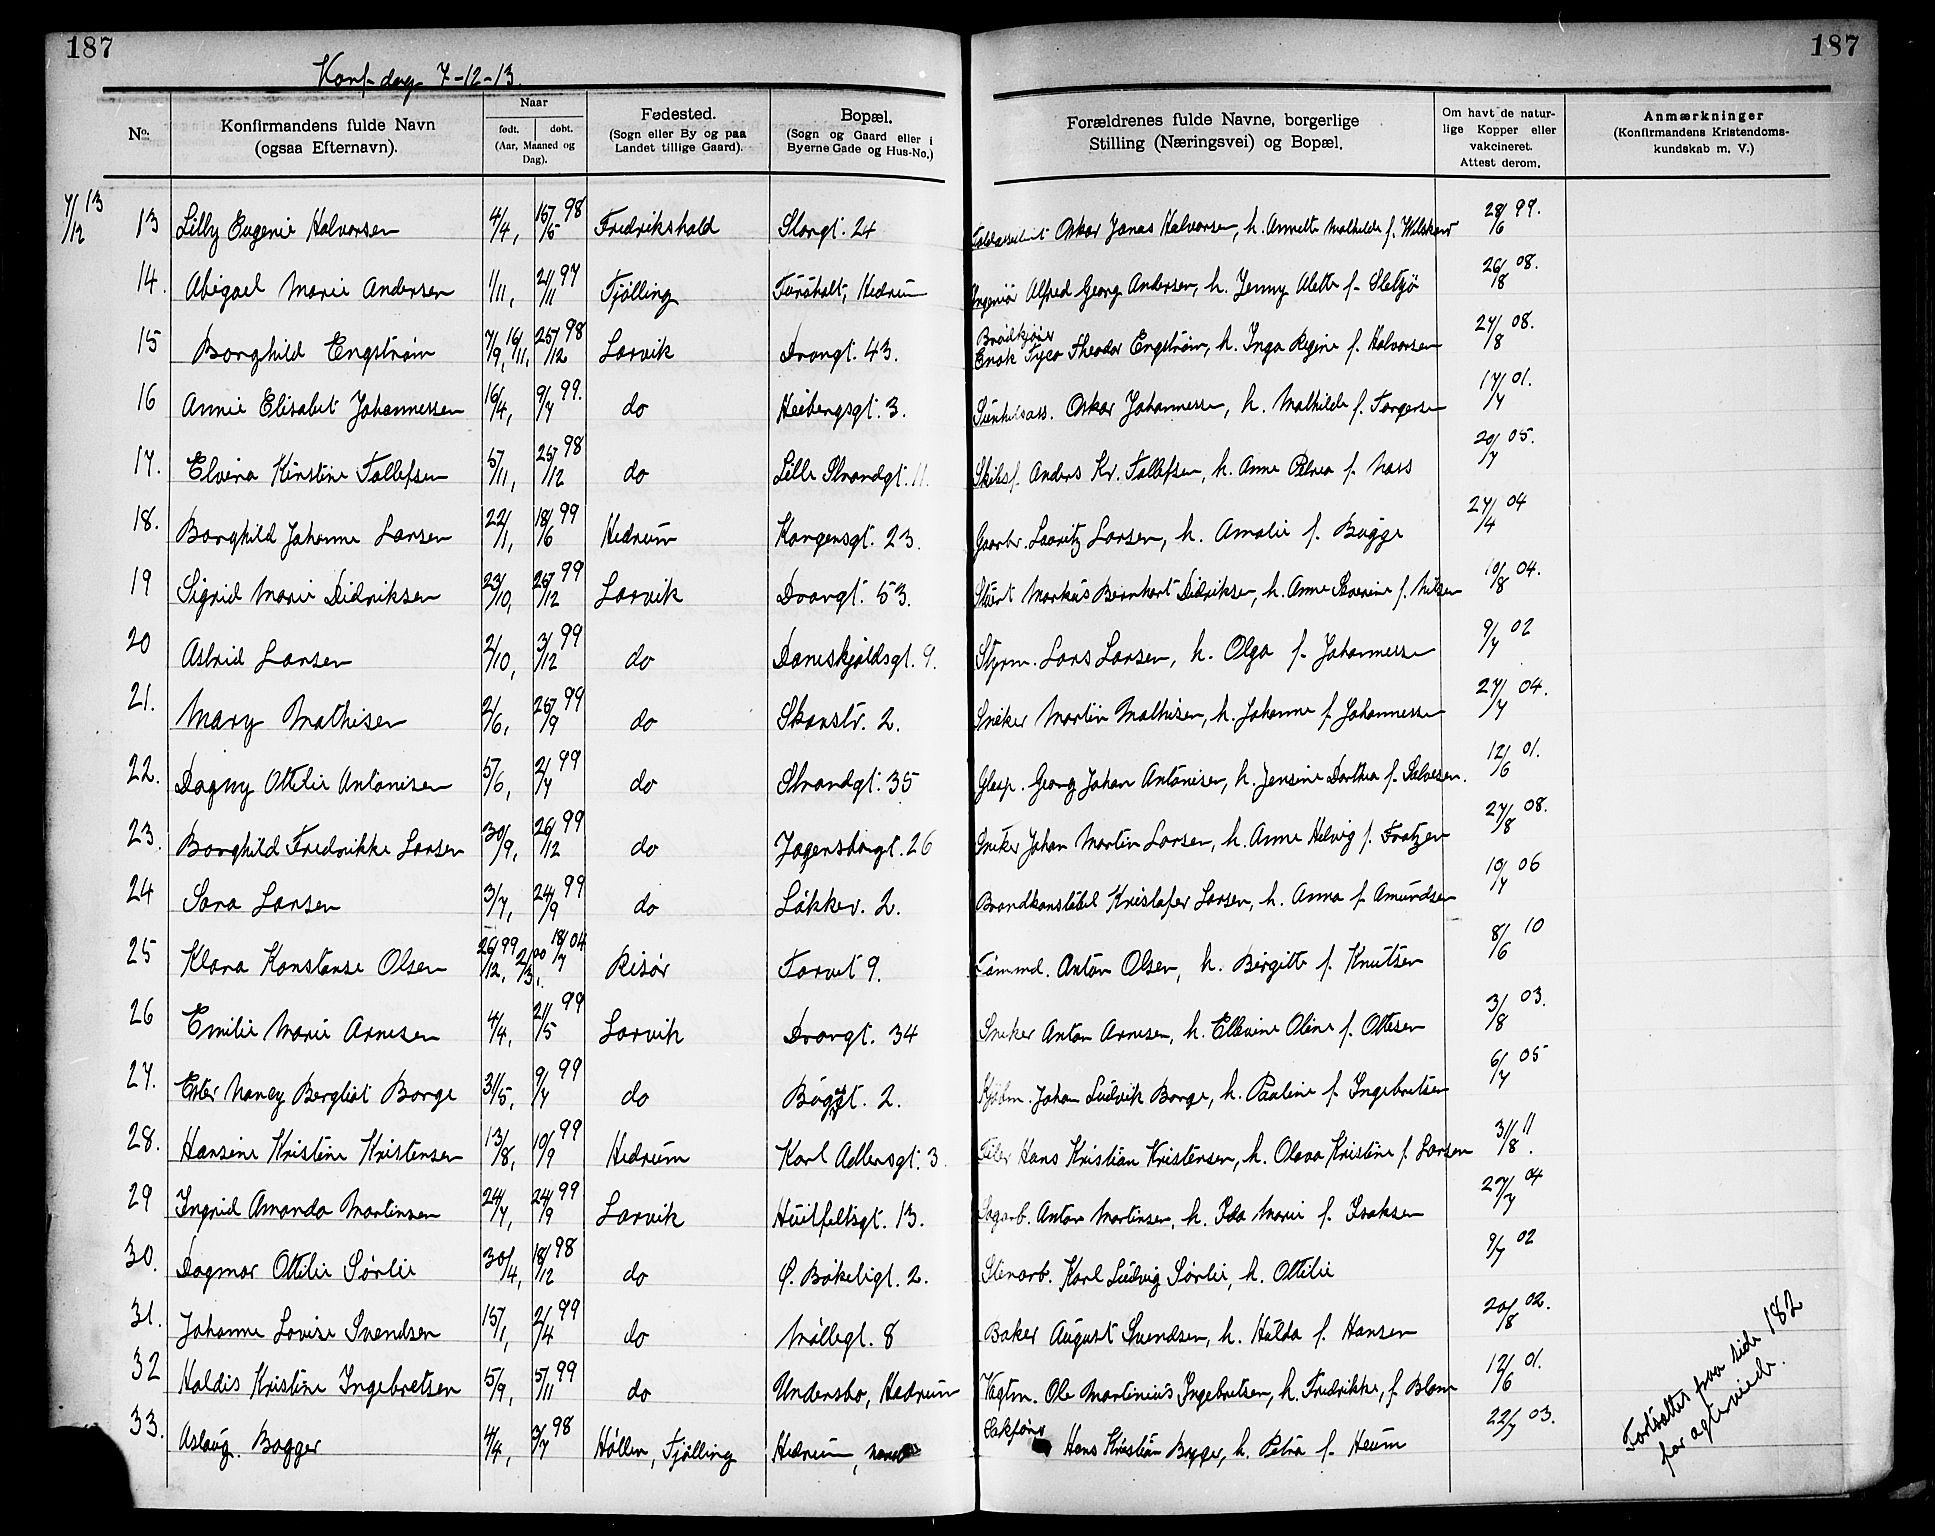 187
187
Konf- dag 7-12-13.
No. Konfirmandens fulde Navn (ogsaa Efternavn). Naar født. døbt. (Aar, Maaned og Dag). Fødested. (Sogn eller By og paa Landet tillige Gaard). Bopæl. (Sogn og Gaard eller i Byerne Gade og Hus-No.) Forældrenes fulde Navne, borgerlige Stilling (Næringsvei) og Bopæl. Om havt de naturlige Kopper eller vakcineret. Attest derom. Anmærkninger (Konfirmandens Kristendomskundskab m. V.)
7/12 13
13 Lilly Eugenie Halvorsen 4/4, 15/5 98 Fredrikshald Storgt. 24 Oskar Jonas Halvorsen, h. Annette Mathilde f. 28/6 99.
14. Abigael Marie Andersen 1/11, 21/11 97 Tjølling Furuholt, Hedrum Ingeniør Alfred Georg Andersen, h. Jenny Alette f. Sletsjø 26/8 08.
15 Borghild Engstrøm 7/9, 16/11, 25/12 98 Larvik Dronngt. 43. Brødkjører Enok Tyco Theodor Engstrøm, h. Inga Regine f. Halvorsen 27/8 08.
16 Annie Elisabet Johannessen 16/4, 9/7 99. do Heibergsgt. 3. Oskar Johannessen, h. Mathilde f. Torgersen 17/7 01.
17. Elvina Kirstine Tollefsen 5/11, 25/12 98 do Lille Strandgt. 11. Skibsf. Anders Kr. Tollefsen, h. Anne Petrea f. Næss 20/7 05.
18. Borghild Johanne Larsen 22/1, 18/6 99 Hedrum Kongensgt. 23. Gaarbr. Lauritz Larsen, h. Amalie f. Bugge 27/4 04
19 Sigrid Marie Didriksen 23/10, 26/12 99 Larvik Drongt. 53. Stuert Markus Bernhart Didriksen, h. Anne Severine f. Nilsen 10/8 04.
20 Astrid Larsen 2/10, 3/12 99 do Daneskjoldsgt. 9. Styrm. Lars Larsen, h. Olga f. Johannessen 9/7 02
21. Mary Mathisen 2/6, 25/9 99 do Skanstr. 2. Sneker Martin Mathisen, h. Johanne f. Johannessen 27/7 04.
22. Dagny Ottilie Antonisen 5/6, 2/7 99 do Strandgt. 35 Georg Johan Antonisen, h. Jensine Dorthea f. Salvesen. 12/6 01.
23. Borghild Fredrikke Larsen 30/9, 26/12 99 do Jegersborgt. 26 Sneker Johan Martin Larsen, h. Anne Helvig f. Frotzen 27/8 08.
24 Sara Larsen 3/7, 24/9 99 do Løkkev. 2. Brandkonstabel Kristofer Larsen, h. Anna f. Amundsen 10/7 06
25 Klara Konstanse Olsen 26/12, 99 2/3, 00 18/7 04 Risør Torvet 9. Tømmd. Anton Olsen, h. Birgitte f. Knutsen 8/6 10
26 Emilie Marie Arnesen 4/4, 21/5 99 Larvik Drongt. 34 Sneker Anton Arnesen, h. Ellevine Oline f. Ottesen 3/8 03.
27. Ester Nancy Bergliot Borge 31/5, 9/7 99 do Buggt. 2. Kjøbm. Johan Ludvik Borge, h. Pauline f. Ingebretsen 6/7 05
28. Hansine Kristine Kristensen 13/8, 10/9 99 Hedrum Karl Adlersgt. 3 Filer Hans Kristian Kristensen, h. Olava Kristine f. Larsen 31/8 11.
29 Ingrid Amanda Martinsen 24/7, 24/9 99 Larvik Huitfeltsgt. 13. Sagarb. Anton Martinsen, h. Ida Marie f. Isaksen 27/7 04
30. Dagmar Ottilie Sørlie 30/4, 18/12 98 do Ø. Bøkeligt. 2. Stenarb. Karl Ludvig Sørlie, h. Ottilie 9/7 02
31. Johanne Lovise Svendsen 15/1, 2/4 99 do Møllegt. 8 Baker August Svendsen, h. Hulda f. Hansen 20/8 02.
32 Haldis Kristine Ingebretsen 5/9, 5/11 99 do Undersbo, Hedrum Vagtm. Ole Martinius Ingebretsen, h. Fredrikke, f. Blom 12/6 01.
33. Aslaug. Bagger 4/4, 3/7 98 Høllen, Tjølling Hedrum, Sakfører Hans Kristian Bagger, h. Petra f. Heum 22/7 03.
Fortsættes fraa side 182
før agterniede.